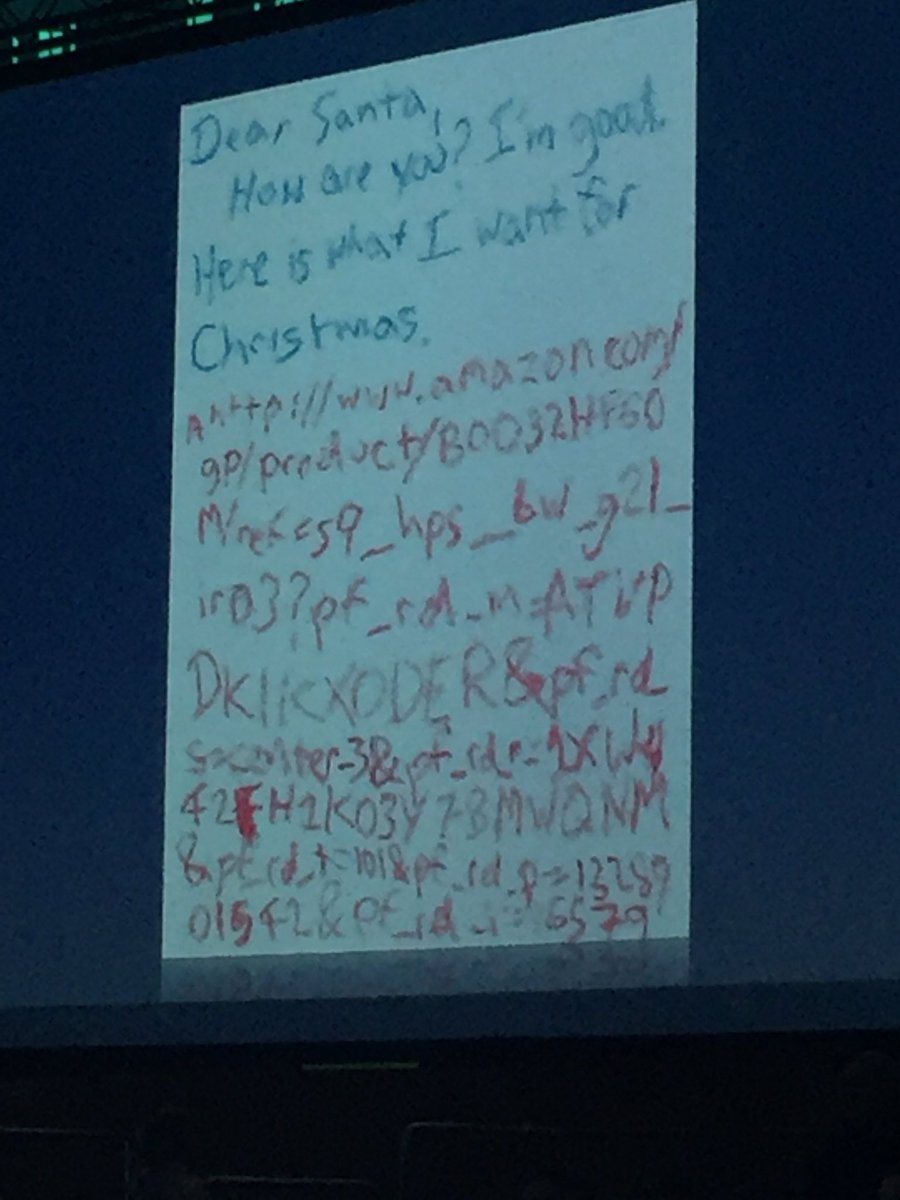 Dear Santa,
How are you? I'm good.
Here is what I want for
Christmas.
http://www.amazon.com/
gp/product/B0032HF60
M/ref=s9_hps_bw_g21_
ir03?pf_rd_m=ATVP
DKIKX0DER&pf_rd_
s=center-3&pf_rd_r=1XWy
42FH1K03Y7BMWQNM
&pf_rd_t=101&pf_rd_p=13289
01542&pf_rd_i=6579